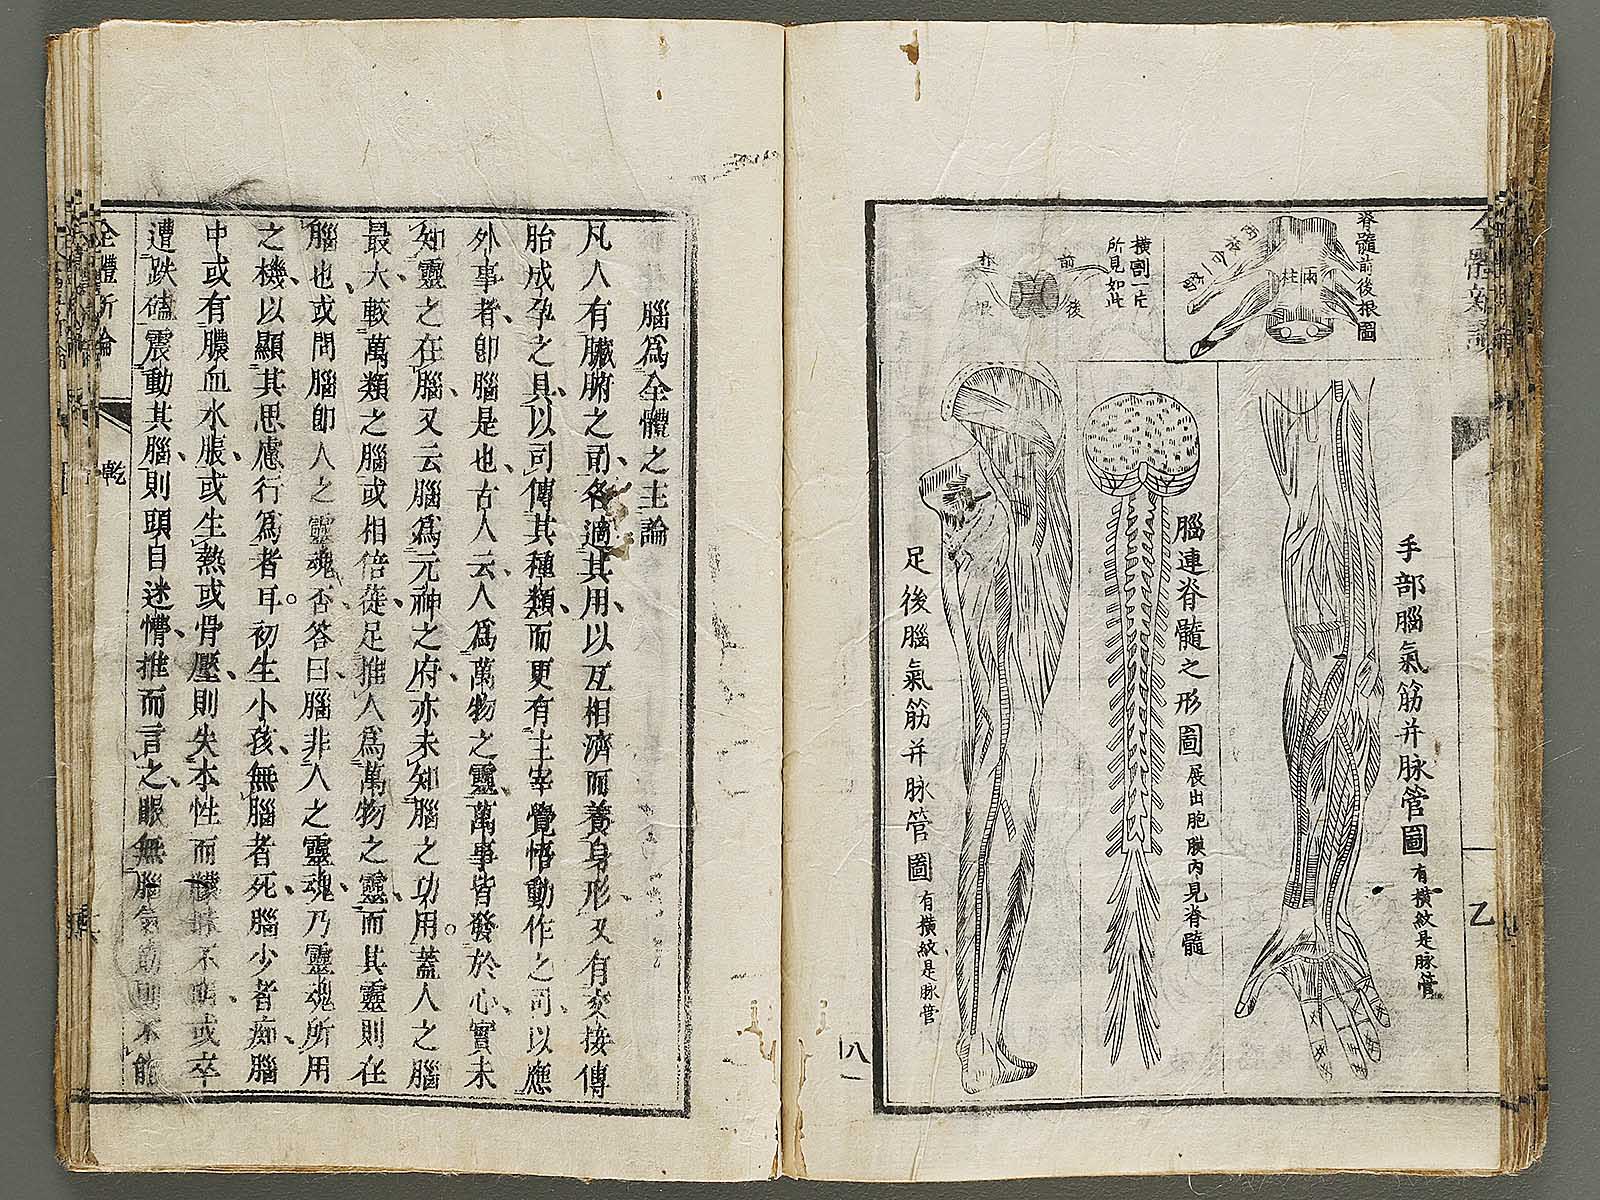 脊髓前後根圖
兩
柱
橫割一片
所見如此
前
後
根
根
手部腦氣筋并脉管圖 有橫紋是脉管
腦連脊髓之形圖 展出胞膜內見脊髓
足後腦氣筋并脉管圖 有橫紋是脉管
乙
八一
腦爲全體之主論
凡人有臟腑之司、各適其用、以互相濟而養身形、又有交接傳
胎成孕之具、以司傳其種類、而更有主宰覺悟動作之司、以應
外事者、卽腦是也、古人云、人爲萬物之靈、萬事皆發於心、實未
知靈之在腦、又云腦爲元神之府、亦未知腦之功用。蓋人之腦
最大、較萬類之腦、或相倍蓰、足推人爲萬物之靈、而其靈則在
腦也、或問腦卽人之靈魂否、答曰、腦非人之靈魂、乃靈魂所用
之機、以顯其思慮行爲者耳。初生小孩、無腦者死、腦少者痴、腦
中或有膿血水脹、或生熱或骨壓、則失本性而不或卒
遭跌磕震動其腦、則頭目迷懵、推而言之、眼無腦氣筋則不能
全體所論
乾